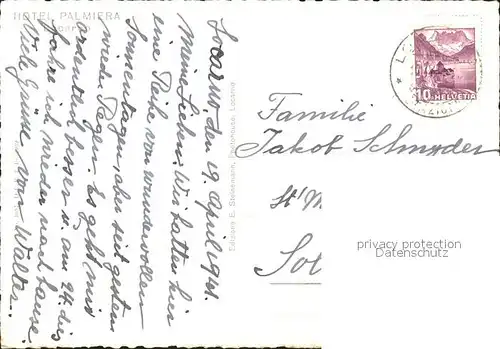 HOTEL PALMIERA
Locarno
Locarno, den 19. April 1941.
Meine Lieben! Wir hatten hier
eine Reihe von wundervollen
Sonnentagen, aber seit gestern
wieder Regen. Es geht mir
ordentlich besser u. am 24. dis
fahre ich wieder nach hause.
Viele Grüsse von Walter.
Edizione E. Steinemann, Locarno
10 HELVETIA
Familie
Jakob Schnyder
St.
So
privacy protection
Datenschutz